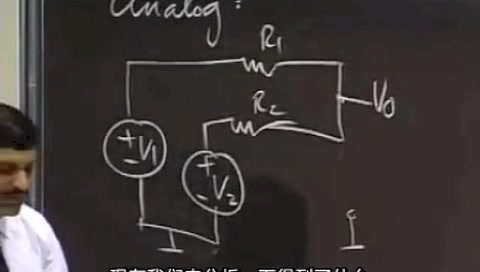 Analog:
R1
R2
V0
+ V1
-
+
- V2
现在我们来分析一下得到了什么